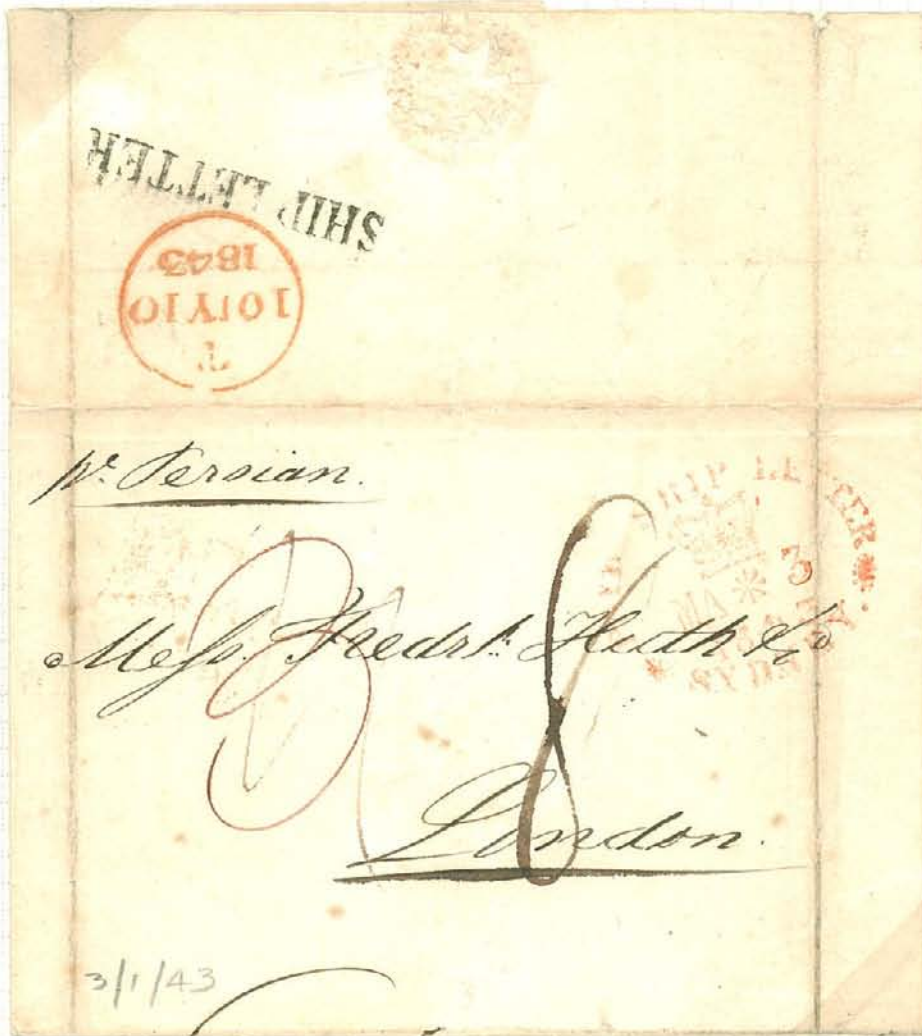 SHIP LETTER
T
10 JY 10
1843
pr. Persian.
SHIP LETTER
3
SYDNEY
Messrs. Fredk. Huth & Co
8
London.
3/1/43